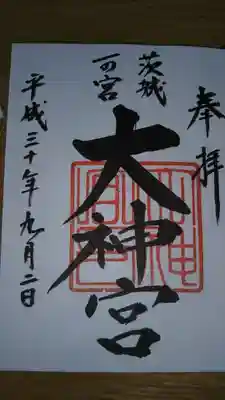 奉拝
茨城
一の宮
大神宮
平成三十年九月二日